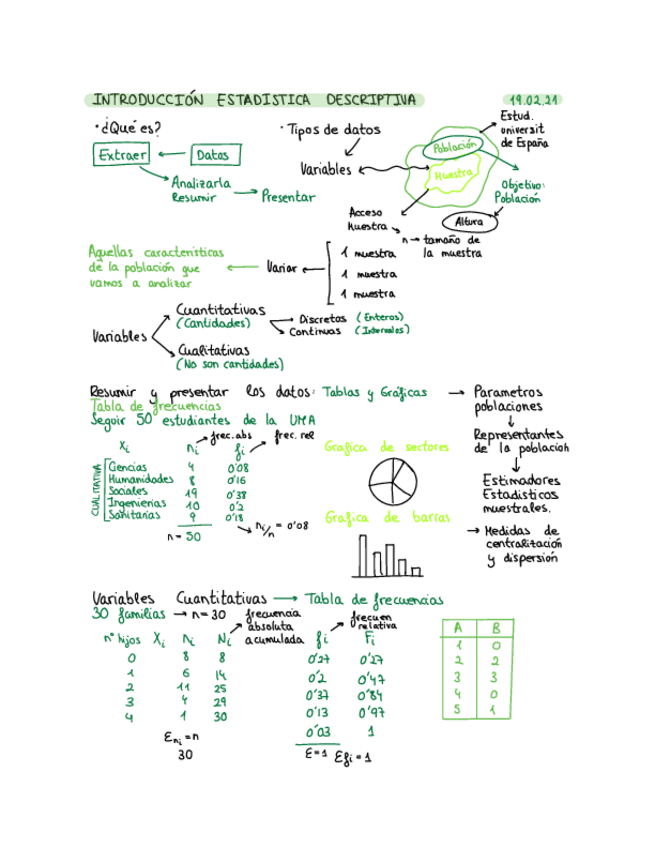 INTRODUCCIÓN ESTADISTICA DESCRIPTIVA 19.02.21
· ¿Qué es?
Extraer
Datos
Analizarla
Resumir
Presentar
· Tipos de datos
Variables
Población
Muestra
Estud.
universit
de España
Objetivo:
Población
Altura
Acceso
Muestra
n → tamaño de
la muestra
Aquellas características
de la población que
vamos a analizar
Variar
1 muestra
1 muestra
1 muestra
Variables
Cuantitativas
(Cantidades)
Discretas (Enteros)
Continuas (Intervalos)
Cualitativas
(No son cantidades)
Resumir y presentar los datos: Tablas y Gráficas → Parametros
poblaciones
Representantes
de la población
Estimadores
Estadisticos
muestrales.
→ Medidas de
centralización
y dispersión
Tabla de frecuencias
Seguir 50 estudiantes de la UMA
frec.abs frec. rel
Xi ni fi
CUALITATIVA
Ciencias 4 0'08
Humanidades 8 0'16
Sociales 19 0'38
Ingenierias 10 0'2
Sanitarias 9 0'18
n = 50
ni/n = 0'08
Grafica de sectores
Grafica de barras
Variables Cuantitativas → Tabla de frecuencias
30 familias → n = 30
frecuencia
absoluta
acumulada
frecuen
relativa
nº hijos Xi ni Ni fi Fi
0 8 8 0'27 0'27
1 6 14 0'2 0'47
2 11 25 0'37 0'84
3 4 29 0'13 0'97
4 1 30 0'03 1
Ɛni = n
30
Ɛ = 1 Ɛfi = 1
A B
1 0
2 2
3 3
4 0
5 1